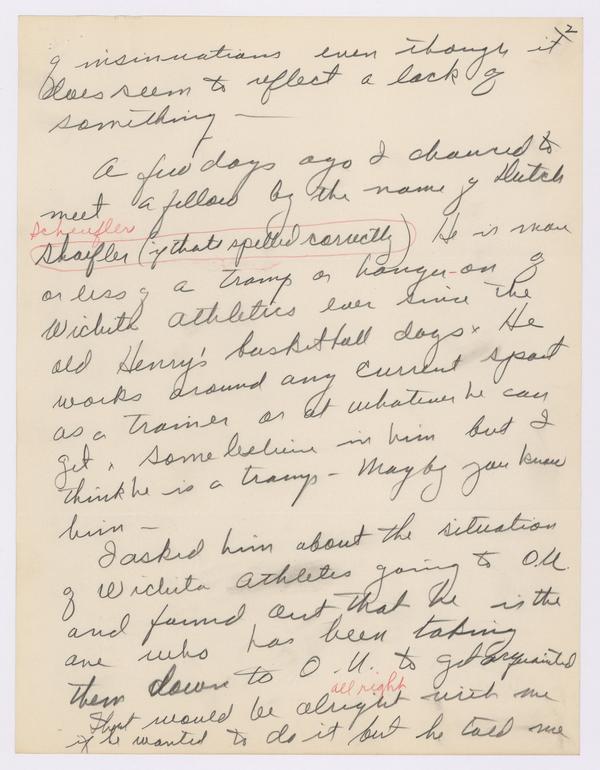 2
of insinuations even though it
does seem to reflect a lack of
something —
A few days ago I chanced to
meet a fellow by the name of Dutch
Scheufler
Shaifler (if that's spelled correctly) He is more
or less of a tramp or hanger-on of
Wichita athletics ever since the
old Henry's basketball days. He
works around any current sport
as a trainer or at whatever he can
get. Some believe in him but I
think he is a tramp - Mayby you know
him —
I asked him about the situation
of Wichita athletes going to O.U.
and found out that he is the
one who has been taking
them down to O.U. to get acquainted
all right
That would be alright with me
if he wanted to do it but he told me